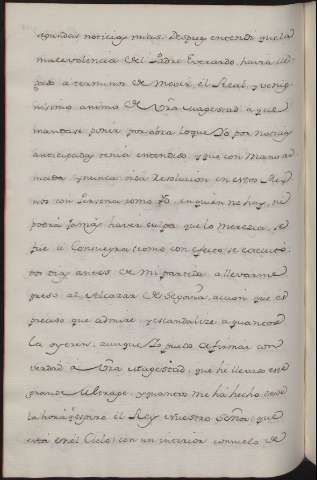 segundas noticias mias. Despues entendi que la
malevolencia del Padre Everardo havia lle-
gado a termino de mover el Real, y benig-
nissimo animo de Vra Magestad a que
mandase poner por obra lo que Yo por noticias
anticipadas tenia entendido, y que con Mano ar-
mada, y nunca oida Resolucion en estos Rey-
nos con Persona como Yo, en quien ne hay, ni
podrá jamás haver culpa que lo meresca, se
fue à Consuegra (como con efecto se executó
dos dias antes de mi partida) a llevarme
preso al Alcazar de Segovia, accion que es
preciso que admire, y escandalize a quantos
la oyeren, aunque Yo puedo afirmar con
verdad a Vra Magestad, que he llevado este
grande Ultrage, y quantos me ha hecho, desde
la hora q espiró el Rey nuestro Señor (que
está en el Cielo) con un interior consuelo de